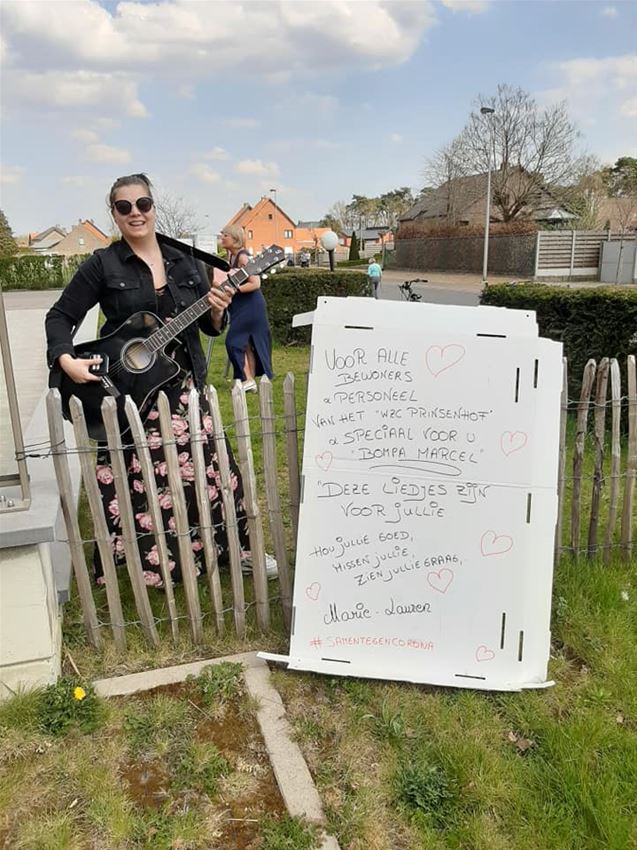 VOOR ALLE
BEWONERS
& PERSONEEL
VAN HET "WZC PRINSENHOF"
& SPECIAAL VOOR U
"BOMPA MARCEL"
"DEZE LIEDJES ZIJN
VOOR JULLIE
HOU JULLIE GOED,
MISSEN JULLIE,
ZIEN JULLIE GRAAG,
Marie-Lauren
#SAMENTEGENCORONA